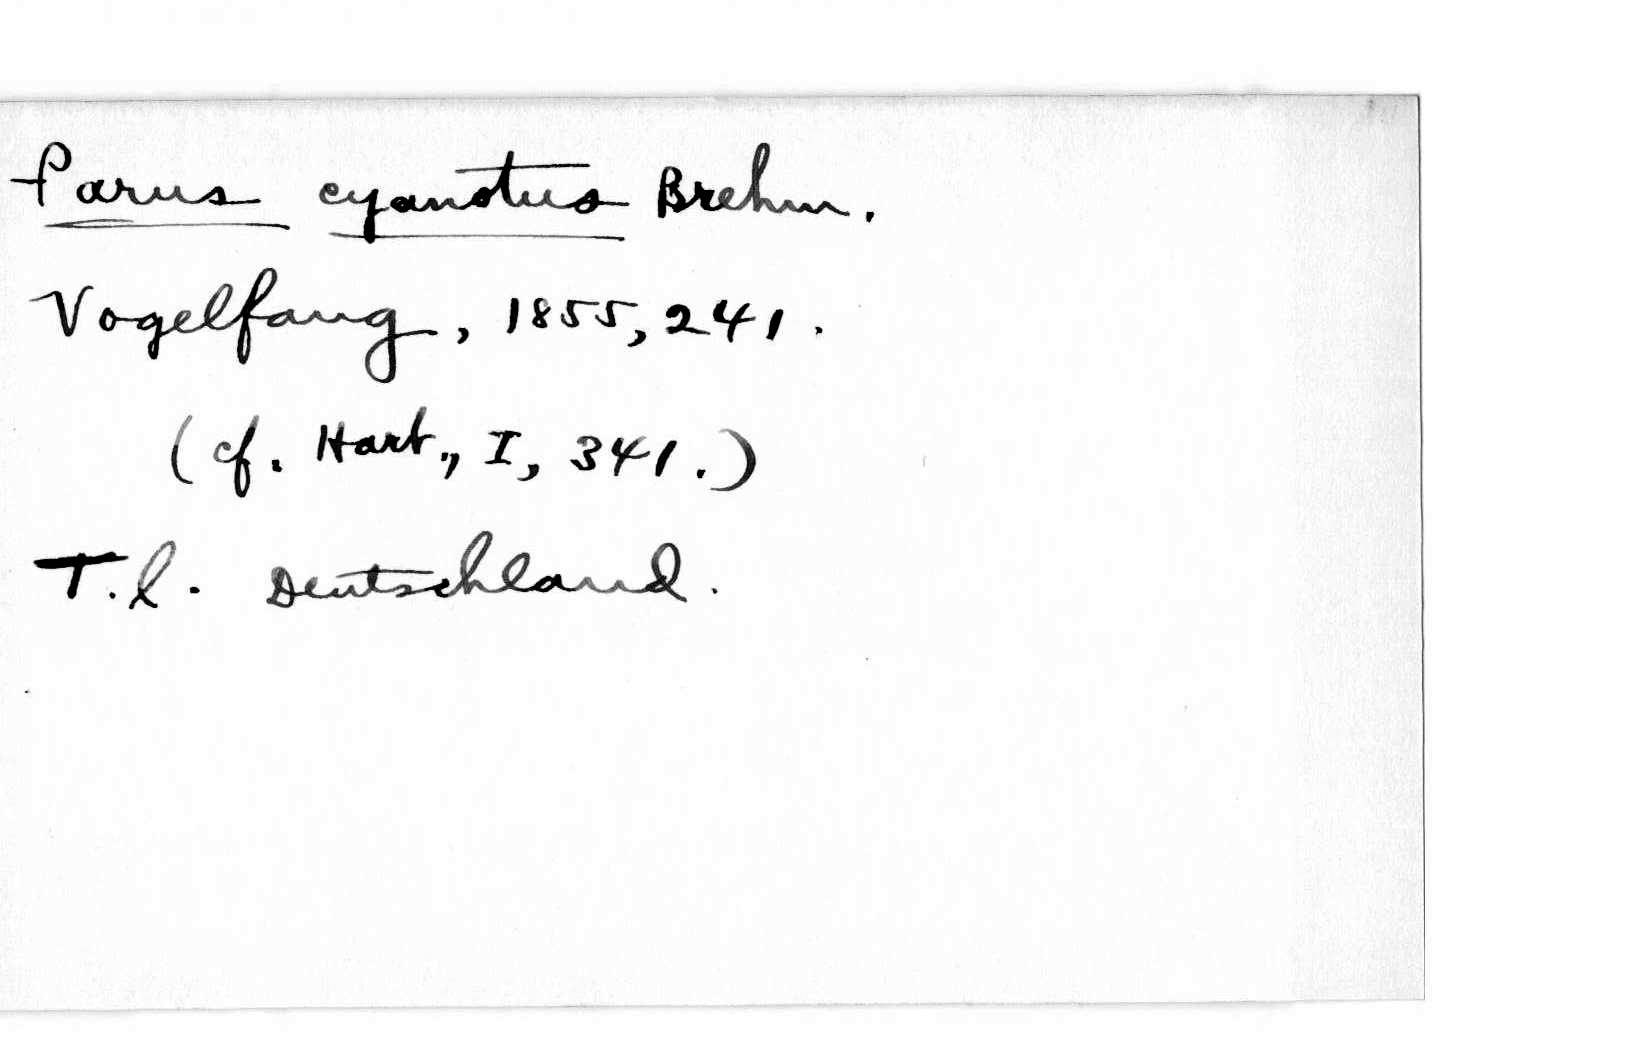 Parus cyanotus Brehm.
Vogelfang, 1855, 241.
(cf. Hart., I, 341.)
T.l. Deutschland.